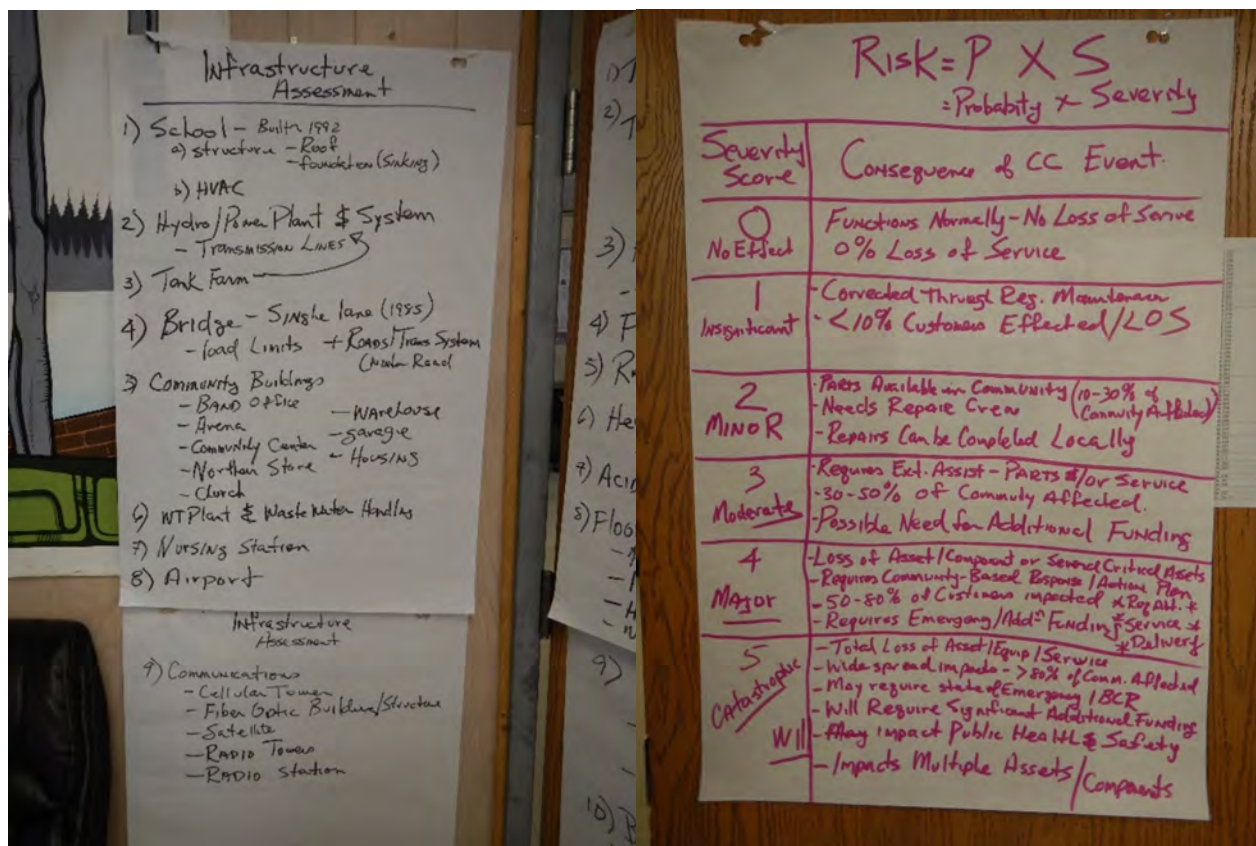 Infrastructure
Assessment
1) School - Built 1992
a) structure - Roof
- foundation (sinking)
b) HVAC
2) Hydro/Power Plant & System
- Transmission Lines
3) Tank Farm
4) Bridge - Single lane (1995)
- load Limits + Roads/Trans System
Road
5) Community Buildings
- BAND Office - Warehouse
- Arena - garage
- Community Center - Housing
- Northern Store
- Church
6) WT Plant & Waste Water Handling
7) Nursing Station
8) Airport
Infrastructure
Assessment
9) Communications
- Cellular Tower
- Fiber Optic Building/Structure
- Satellite
- RADIO Towers
- RADIO Station
1)
2)
3)
4) F
5) R
6) He
7) Acid
8) Floo
9)
10)
Risk = P X S
= Probabity x Severity
Severity
Score
Consequence of CC Event.
0
No Effect
Functions Normally - No Loss of Serive
0% Loss of Service
1
Insignificant
- Corrected Through Reg. Maintenan
- <10% Customers Effected/LOS
2
MINOR
- Parts Available in Community (10-30% of
Community Affected)
- Needs Repair Crew
- Repairs Can be Completed Locally
3
Moderate
- Requires Ext. Assist - PARTS &/or Service
- 30-50% of Commuty Affected.
- Possible Need for Additional Funding
4
Major
- Loss of Asset/Component or Several Critical Assets
- Requires Community-Based Response/Action Plan
- 50-80% of Customers impacted * Req Alt. *
- Requires Emergency/Addn Funding * Service *
* Delivery
5
Catastrophic
- Total Loss of Asset/Equip/Service
- Wide spread impacts - >80% of Comm. Affected
- May require state of Emergency / BCR
- Will Require Significant Additional Funding
Will - May impact Public Health & Safety
- Impacts Multiple Assets/Components